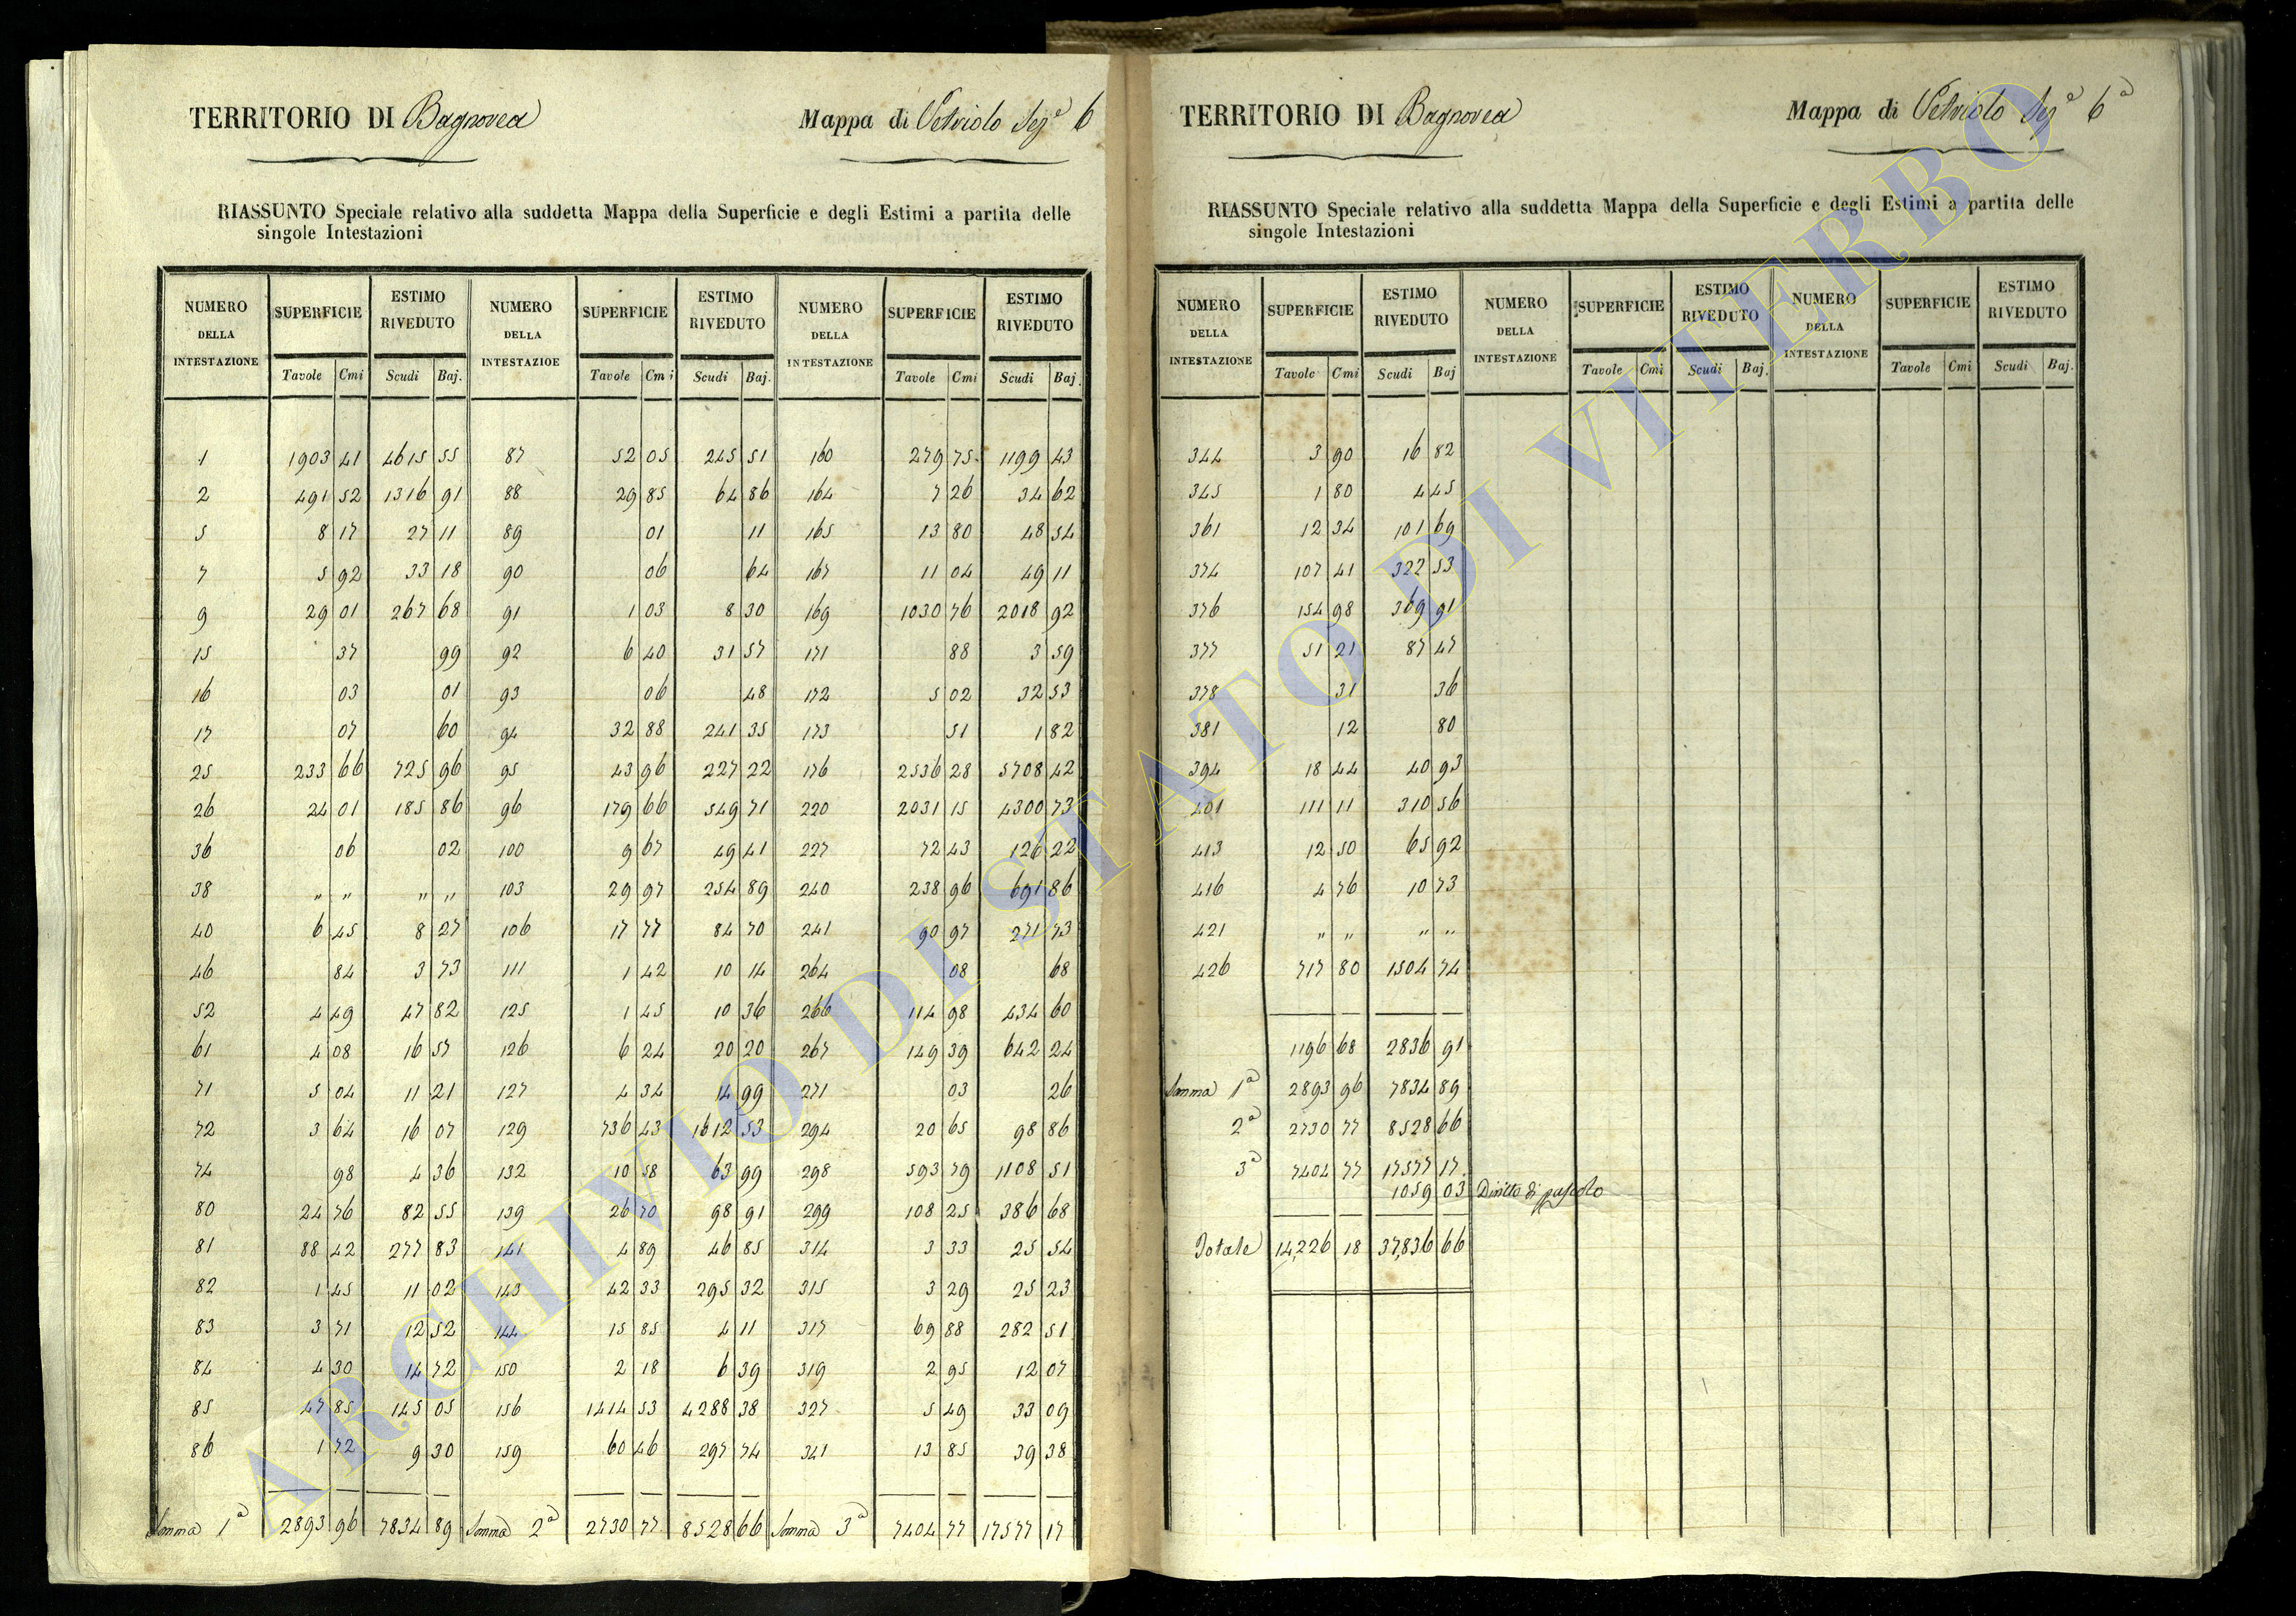 TERRITORIO DI Bagnorea Mappa di Vetriolo Sez.ª 6
RIASSUNTO Speciale relativo alla suddetta Mappa della Superficie e degli Estimi a partita delle
singole Intestazioni
NUMERO DELLA INTESTAZIONE SUPERFICIE ESTIMO RIVEDUTO NUMERO DELLA INTESTAZIOE SUPERFICIE ESTIMO RIVEDUTO NUMERO DELLA INTESTAZIONE SUPERFICIE ESTIMO RIVEDUTO
Tavole Cmi Scudi Baj. Tavole Cmi Scudi Baj. Tavole Cmi Scudi Baj.
1 1903 41 4615 55 87 52 05 245 51 160 279 75 1199 43
2 491 52 1316 91 88 29 85 64 86 164 7 26 34 62
5 8 17 27 11 89 01 11 165 13 80 48 54
7 5 92 33 18 90 06 64 167 11 04 49 11
9 29 01 267 68 91 1 03 8 30 169 1030 76 2018 92
15 37 99 92 6 40 31 57 171 88 3 59
16 03 01 93 06 48 172 5 02 32 53
17 07 60 94 32 88 241 35 173 51 1 82
25 233 66 725 96 95 43 96 227 22 176 2536 28 5708 42
26 24 01 185 86 96 179 66 549 71 220 2031 15 4300 73
36 06 02 100 9 67 49 41 227 72 43 126 22
38 " " " " 103 29 97 254 89 240 238 96 691 86
40 6 45 8 27 106 17 77 84 70 241 90 97 271 73
46 84 3 73 111 1 42 10 14 264 08 68
52 4 49 47 82 125 1 45 10 36 266 114 98 434 60
61 4 08 16 57 126 6 24 20 20 267 149 39 642 24
71 5 04 11 21 127 4 34 14 99 271 03 26
72 3 64 16 07 129 736 43 1612 53 294 20 65 98 86
74 98 4 36 132 10 58 63 99 298 593 79 1108 51
80 24 76 82 55 139 26 70 98 91 299 108 25 386 68
81 88 42 277 83 141 4 89 46 85 314 3 33 25 54
82 1 45 11 02 143 42 33 295 32 315 3 29 25 23
83 3 71 12 52 144 15 85 4 11 317 69 88 282 51
84 4 30 14 72 150 2 18 6 39 319 2 95 12 07
85 47 85 145 05 156 1414 53 4288 38 327 5 49 33 09
86 1 72 9 30 159 60 46 297 74 341 13 85 39 38
Somma 1ª 2893 96 7834 89 Somma 2ª 2730 77 8528 66 Somma 3ª 7404 77 17577 17
TERRITORIO DI Bagnorea Mappa di Vetriolo Sez 6ª
RIASSUNTO Speciale relativo alla suddetta Mappa della Superficie e degli Estimi a partita delle
singole Intestazioni
NUMERO DELLA INTESTAZIONE SUPERFICIE ESTIMO RIVEDUTO NUMERO DELLA INTESTAZIONE SUPERFICIE ESTIMO RIVEDUTO NUMERO DELLA INTESTAZIONE SUPERFICIE ESTIMO RIVEDUTO
Tavole Cmi Scudi Baj Tavole Cmi Scudi Baj. Tavole Cmi Scudi Baj.
344 3 90 16 82
345 1 80 4 45
361 12 34 101 69
374 107 41 322 53
376 154 98 369 91
377 51 21 87 47
378 31 36
381 12 80
394 18 44 40 93
401 111 11 310 56
413 12 50 65 92
416 4 76 10 73
421 " " " "
426 717 80 1504 74
1196 68 2836 91
Somma 1ª 2893 96 7834 89
2ª 2730 77 8528 66
3ª 7404 77 17577 17
1059 03 Diritto di pascolo
Totale 14,226 18 37,836 66
ARCHIVIO DI STATO DI VITERBO